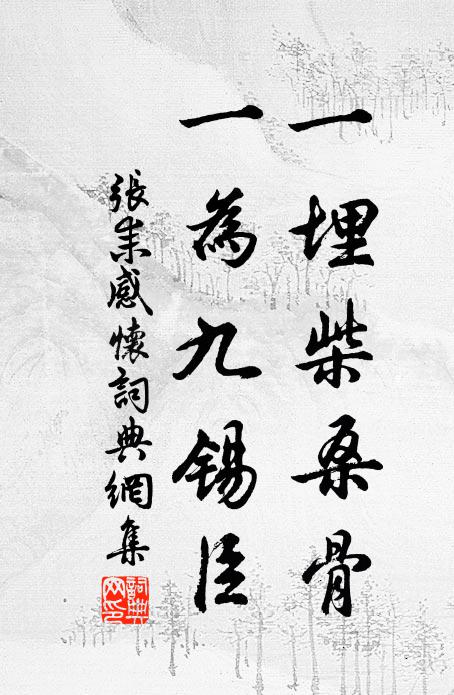 一埋柴桑骨
一為九錫臣
張耒感懷詞典網集
詞典網印